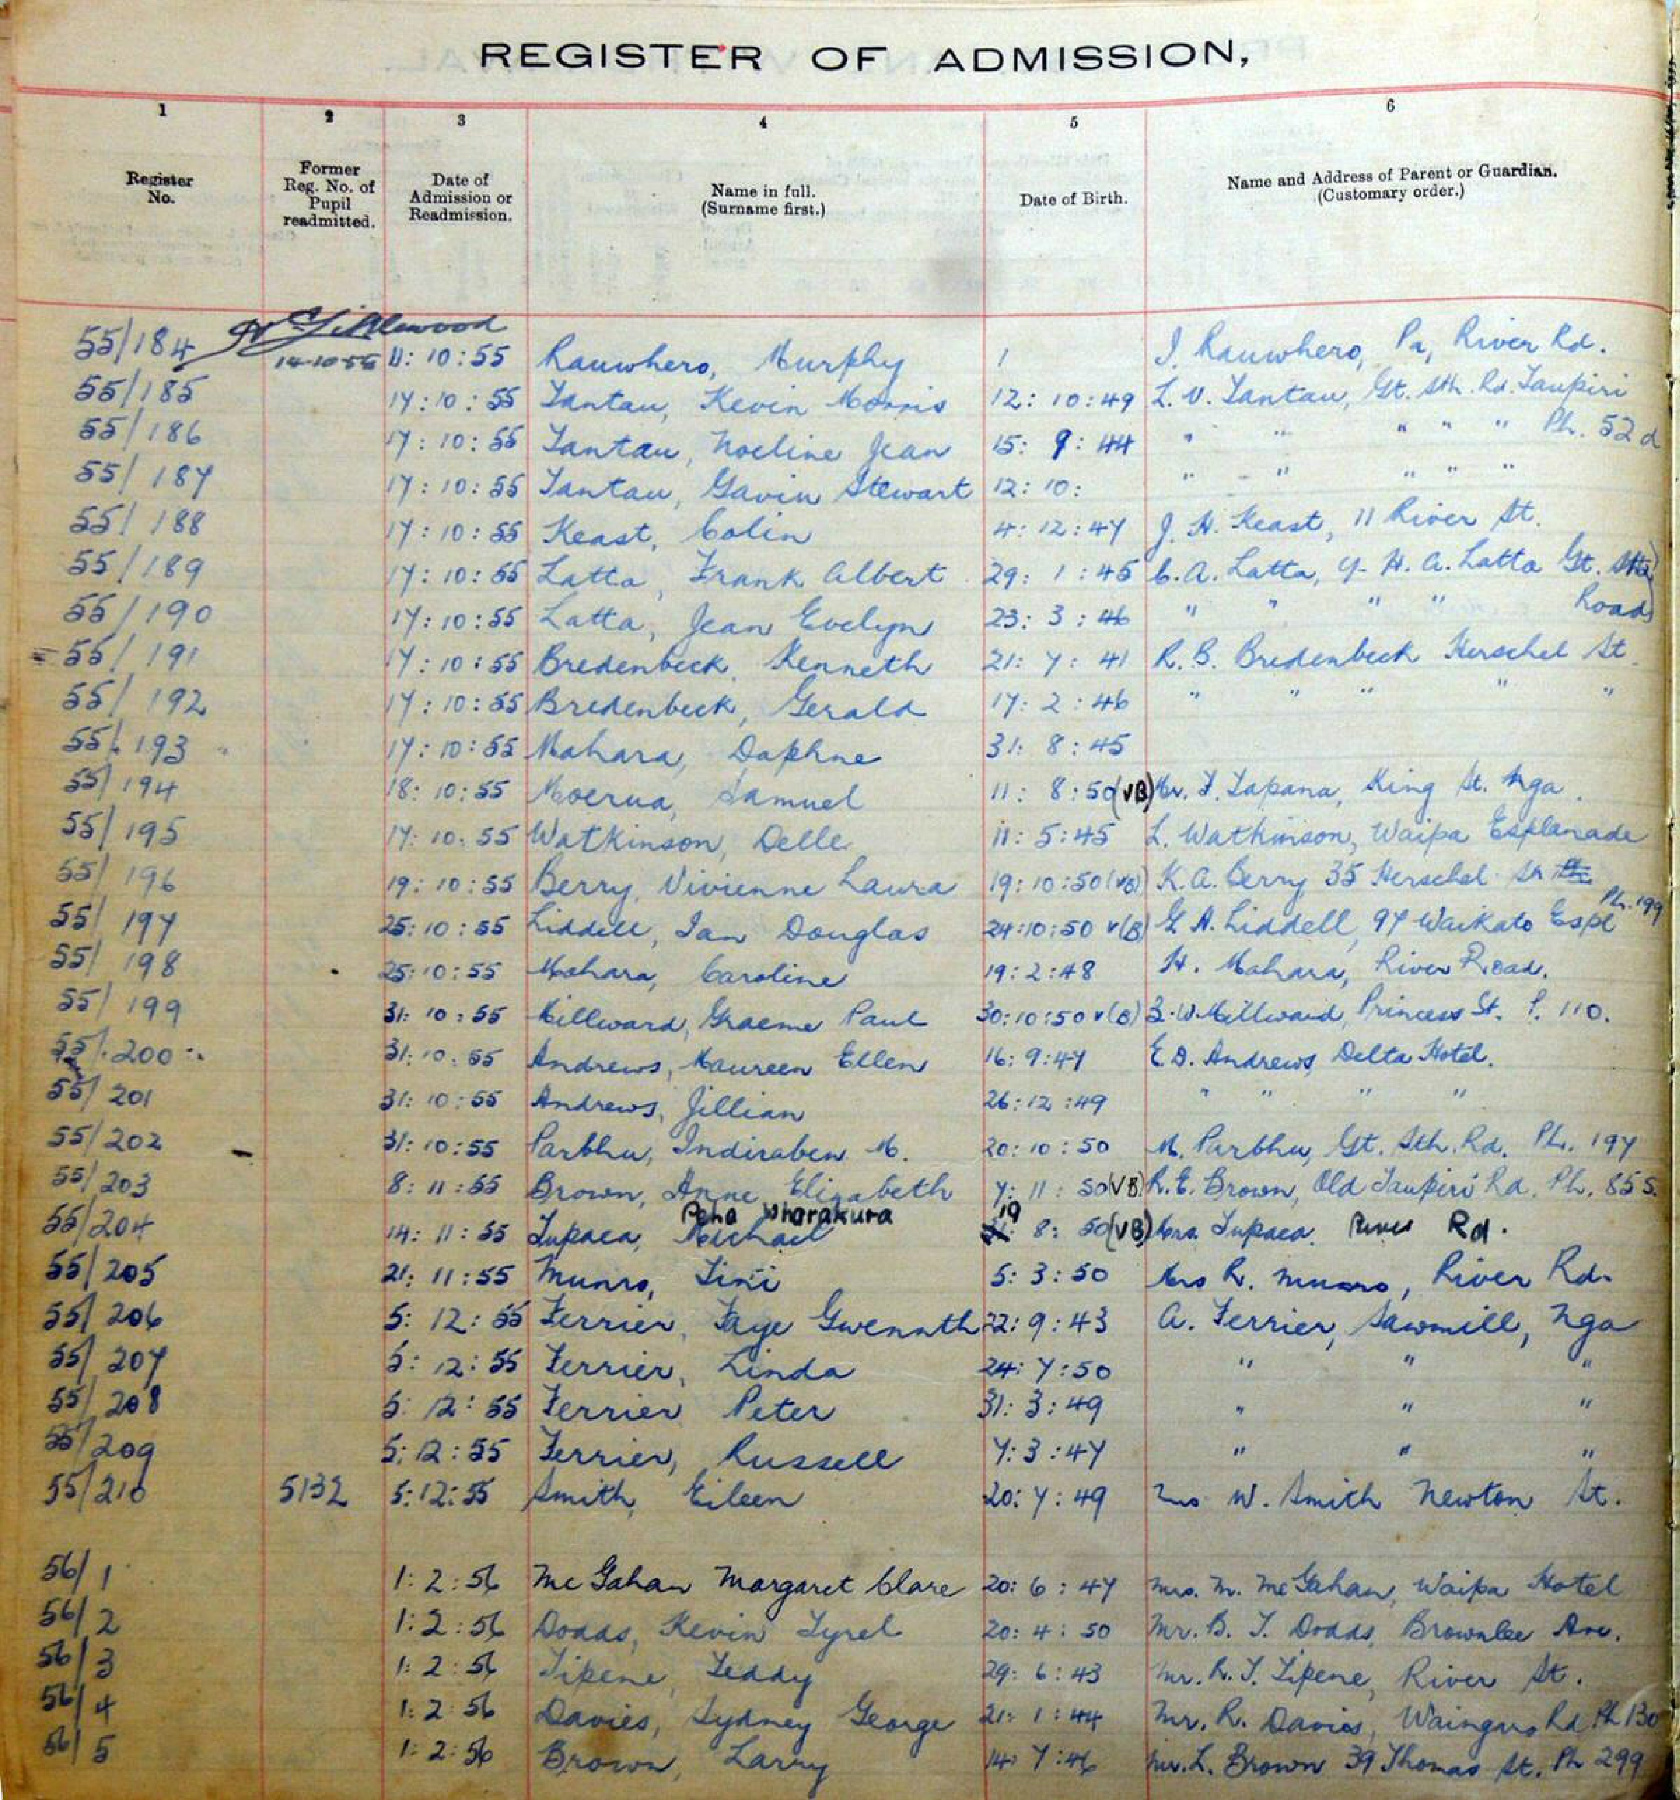 REGISTER OF ADMISSION,
1 2 3 4 5 6
Register No. Former Reg. No. of Pupil readmitted. Date of Admission or Readmission. Name in full. (Surname first.) Date of Birth. Name and Address of Parent or Guardian. (Customary order.)
55/184 14-10-55 11:10:55 Rauwhero, Murphy 1 I. Rauwhero, Pa, River Rd.
55/185 17:10:55 Tantau, Kevin Morris 12:10:49 L. V. Tantau, Gt. Sth. Rd. Taupiri
55/186 17:10:55 Tantau, Noeline Jean 15:9:44 " " " " " Ph. 52d
55/187 17:10:55 Tantau, Gavin Stewart 12:10: " " " " "
55/188 17:10:55 Keast, Colin 4:12:47 J. H. Keast, 11 River St.
55/189 17:10:55 Latta, Frank Albert 29:1:45 C. A. Latta, H. A. Latta Gt. Sth
55/190 17:10:55 Latta, Jean Evelyn 23:3:46 " " " " Road)
55/191 17:10:55 Bredenbeck, Kenneth 21:7:41 R. B. Bredenbeck Herschel St.
55/192 17:10:55 Bredenbeck, Gerald 17:2:46 " " " " "
55/193 17:10:55 Mahara, Daphne 31:8:45
55/194 18:10:55 Moerua, Samuel 11:8:50 (VB) Mr. T. Tapana, King St. Nga.
55/195 17:10:55 Watkinson, Delle 11:5:45 L. Watkinson, Waipa Esplanade
55/196 19:10:55 Berry, Vivienne Laura 19:10:50 (VB) K. A. Berry 35 Herschel St
55/197 25:10:55 Liddell, Ian Douglas 24:10:50 V(B) G. A. Liddell, 97 Waikato Espl Ph. 199
55/198 25:10:55 Mahara, Caroline 19:2:48 H. Mahara, River Road.
55/199 31:10:55 Millward, Graeme Paul 30:10:50 V(B) W. Millward, Princess St. P. 110.
55/200 31:10:55 Andrews, Maureen Ellen 16:9:47 E. D. Andrews, Delta Hotel.
55/201 31:10:55 Andrews, Jillian 26:12:49 " " " "
55/202 31:10:55 Parbhu, Indiraben M. 20:10:50 M. Parbhu, Gt. Sth. Rd. Ph. 197
55/203 8:11:55 Brown, Anne Elizabeth 7:11:50 (VB) R. E. Brown, Old Taupiri Rd. Ph. 85S.
Peha Wharakura 19
55/204 14:11:55 Tupaea, Michael 8:50 (VB) Mrs. Tupaea. River Rd.
55/205 21:11:55 Munro, Tini 5:3:50 Mrs R. Munro, River Rd.
55/206 5:12:55 Ferrier, Faye Gwennth 22:9:43 A. Ferrier, Sawmill, Nga
55/207 5:12:55 Ferrier, Linda 24:7:50 " " "
55/208 5:12:55 Ferrier, Peter 31:3:49 " " "
55/209 5:12:55 Ferrier, Russell 7:3:47 " " "
55/210 5132 5:12:55 Smith, Eileen 20:7:49 Mrs W. Smith Newton St.
56/1 1:2:56 McGahan Margaret Clare 20:6:47 Mrs. M. McGahan, Waipa Hotel
56/2 1:2:56 Dodds, Kevin Tyrel 20:4:50 Mr. B. T. Dodds, Brownlee Ave.
56/3 1:2:56 Tipene, Teddy 29:6:43 Mr. R. T. Tipene, River St.
56/4 1:2:56 Davies, Sydney George 21:1:44 Mr. R. Davies, Waingaro Rd. Ph 130
56/5 1:2:56 Brown, Larry 14:7:46 Mr. L. Brown 39 Thomas St. Ph 299